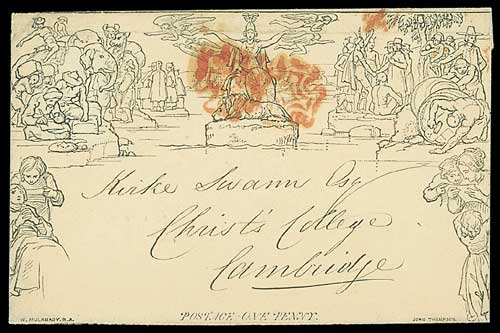 Kirke Swann Esq
Christ's College
Cambridge
POSTAGE ONE PENNY.
W. MULREADY. R.A.
JOHN THOMPSON.